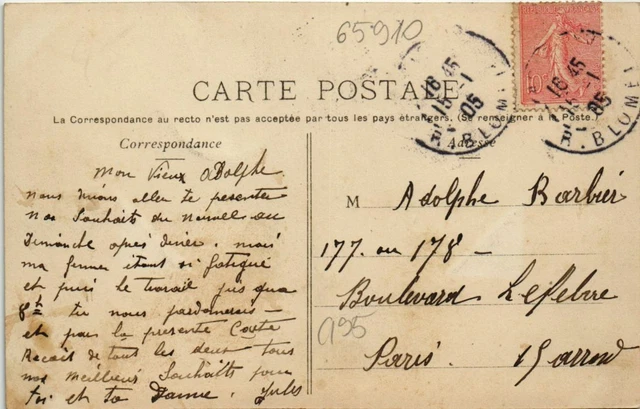 65910
CARTE POSTALE
La Correspondance au recto n'est pas acceptée par tous les pays étrangers. (Se renseigner à la Poste.)
Correspondance
Mon Vieux Adolphe
nous irions aller te presenter
nos Souhaits du nouvelle an
Dimanche après diner. mais
ma femme étant si fatiguée
et puis le travail jus qua
8h tu nous pardonerais –
et par la presente Carte
Recoit de tout les deux tous
nos meilleurs Souhaits pour
toi et ta Dame. Jules
Adresse
M Adolphe Barbier
177. ou 178 –
Boulevard Lefebre
Paris. 15 arron
a95
10c
16 45
15 - 1
05
R. BLOMET
16 45
15 - 1
05
R. BLOMET